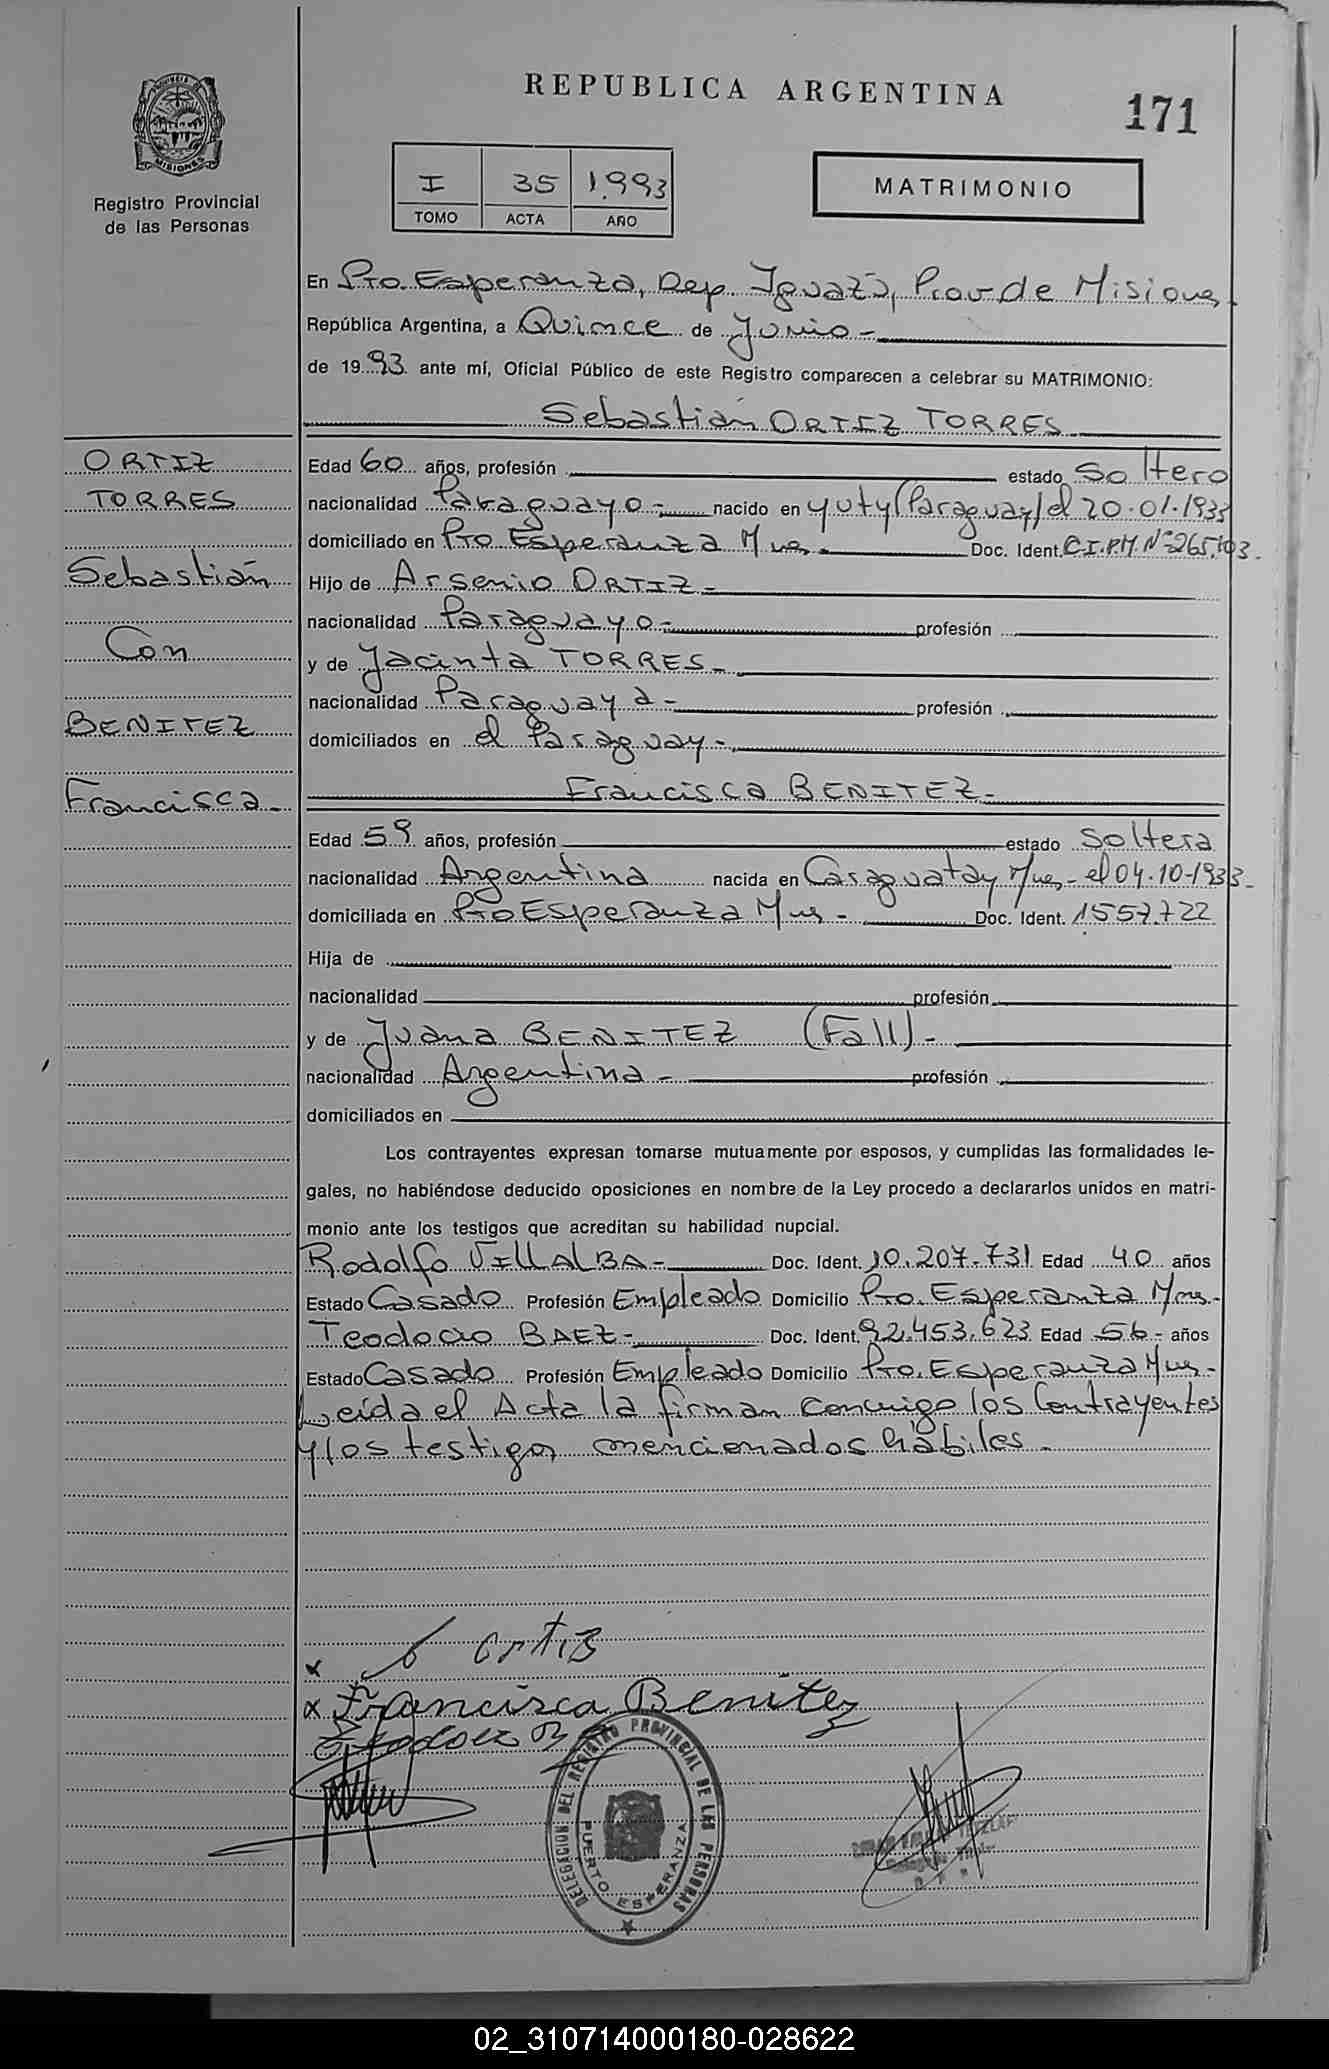 REPUBLICA ARGENTINA
171
PROVINCIA DE MISIONES
Registro Provincial
de las Personas
I 35 1.993
TOMO ACTA AÑO
MATRIMONIO
En Pto. Esperanza, Dep. Iguazú, Prov de Misiones
República Argentina, a Quince de Junio -
de 1993 ante mí, Oficial Público de este Registro comparecen a celebrar su MATRIMONIO:
Sebastián ORTIZ TORRES
ORTIZ
TORRES
Sebastián
Con
BENITEZ
Francisca -
Edad 60 años, profesión estado Soltero
nacionalidad Paraguayo - nacido en yuty (Paraguay) el 20.01.1933
domiciliado en Pto Esperanza Mnes - Doc. Ident. C.I.P.M. Nº 265.103.
Hijo de Arsenio ORTIZ -
nacionalidad Paraguayo - profesión
y de Jacinta TORRES -
nacionalidad Paraguaya - profesión
domiciliados en el Paraguay -
Francisca BENITEZ -
Edad 59 años, profesión estado Soltera
nacionalidad Argentina nacida en Caraguatay Mnes - el 04.10-1933 -
domiciliada en Pto Esperanza Mns - Doc. Ident. 1557.722
Hija de
nacionalidad profesión
y de Juana BENITEZ (Fall) -
nacionalidad Argentina - profesión
domiciliados en
Los contrayentes expresan tomarse mutuamente por esposos, y cumplidas las formalidades le-
gales, no habiéndose deducido oposiciones en nombre de la Ley procedo a declararlos unidos en matri-
monio ante los testigos que acreditan su habilidad nupcial.
Rodolfo VILLALBA - Doc. Ident. 10.207.731 Edad 40 años
Estado Casado Profesión Empleado Domicilio Pto. Esperanza Mns -
Teodocio BAEZ - Doc. Ident. 92.453.623 Edad 56 - años
Estado Casado Profesión Empleado Domicilio Pto. Esperanza Mns -
Leída el Acta la firman conmigo los Contrayentes
y los testigos mencionados hábiles -
x ortiz
x Francisca Benitez
DELEGACION DEL REGISTRO PROVINCIAL DE LAS PERSONAS
PUERTO ESPERANZA
02_310714000180-028622